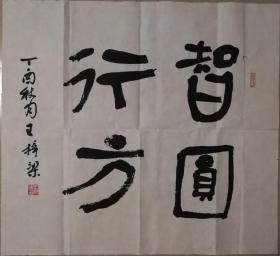 智圓
行方
丁酉秋月王梓梁